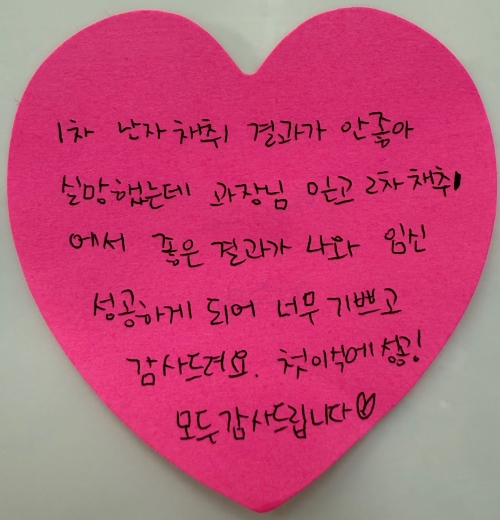 1차 난자채취 결과가 안좋아
실망했는데 과장님 믿고 2차채취
에서 좋은 결과가 나와 임신
성공하게 되어 너무 기쁘고
감사드려요. 첫이식에 성공!
모두 감사드립니다♡